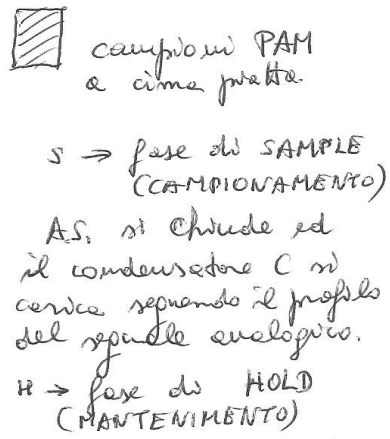 campioni PAM
a cima piatta.
S → fase di SAMPLE
(CAMPIONAMENTO)
A.S. si chiude ed
il condensatore C si
carica seguendo il profilo
del segnale analogico.
H → fase di HOLD
(MANTENIMENTO)